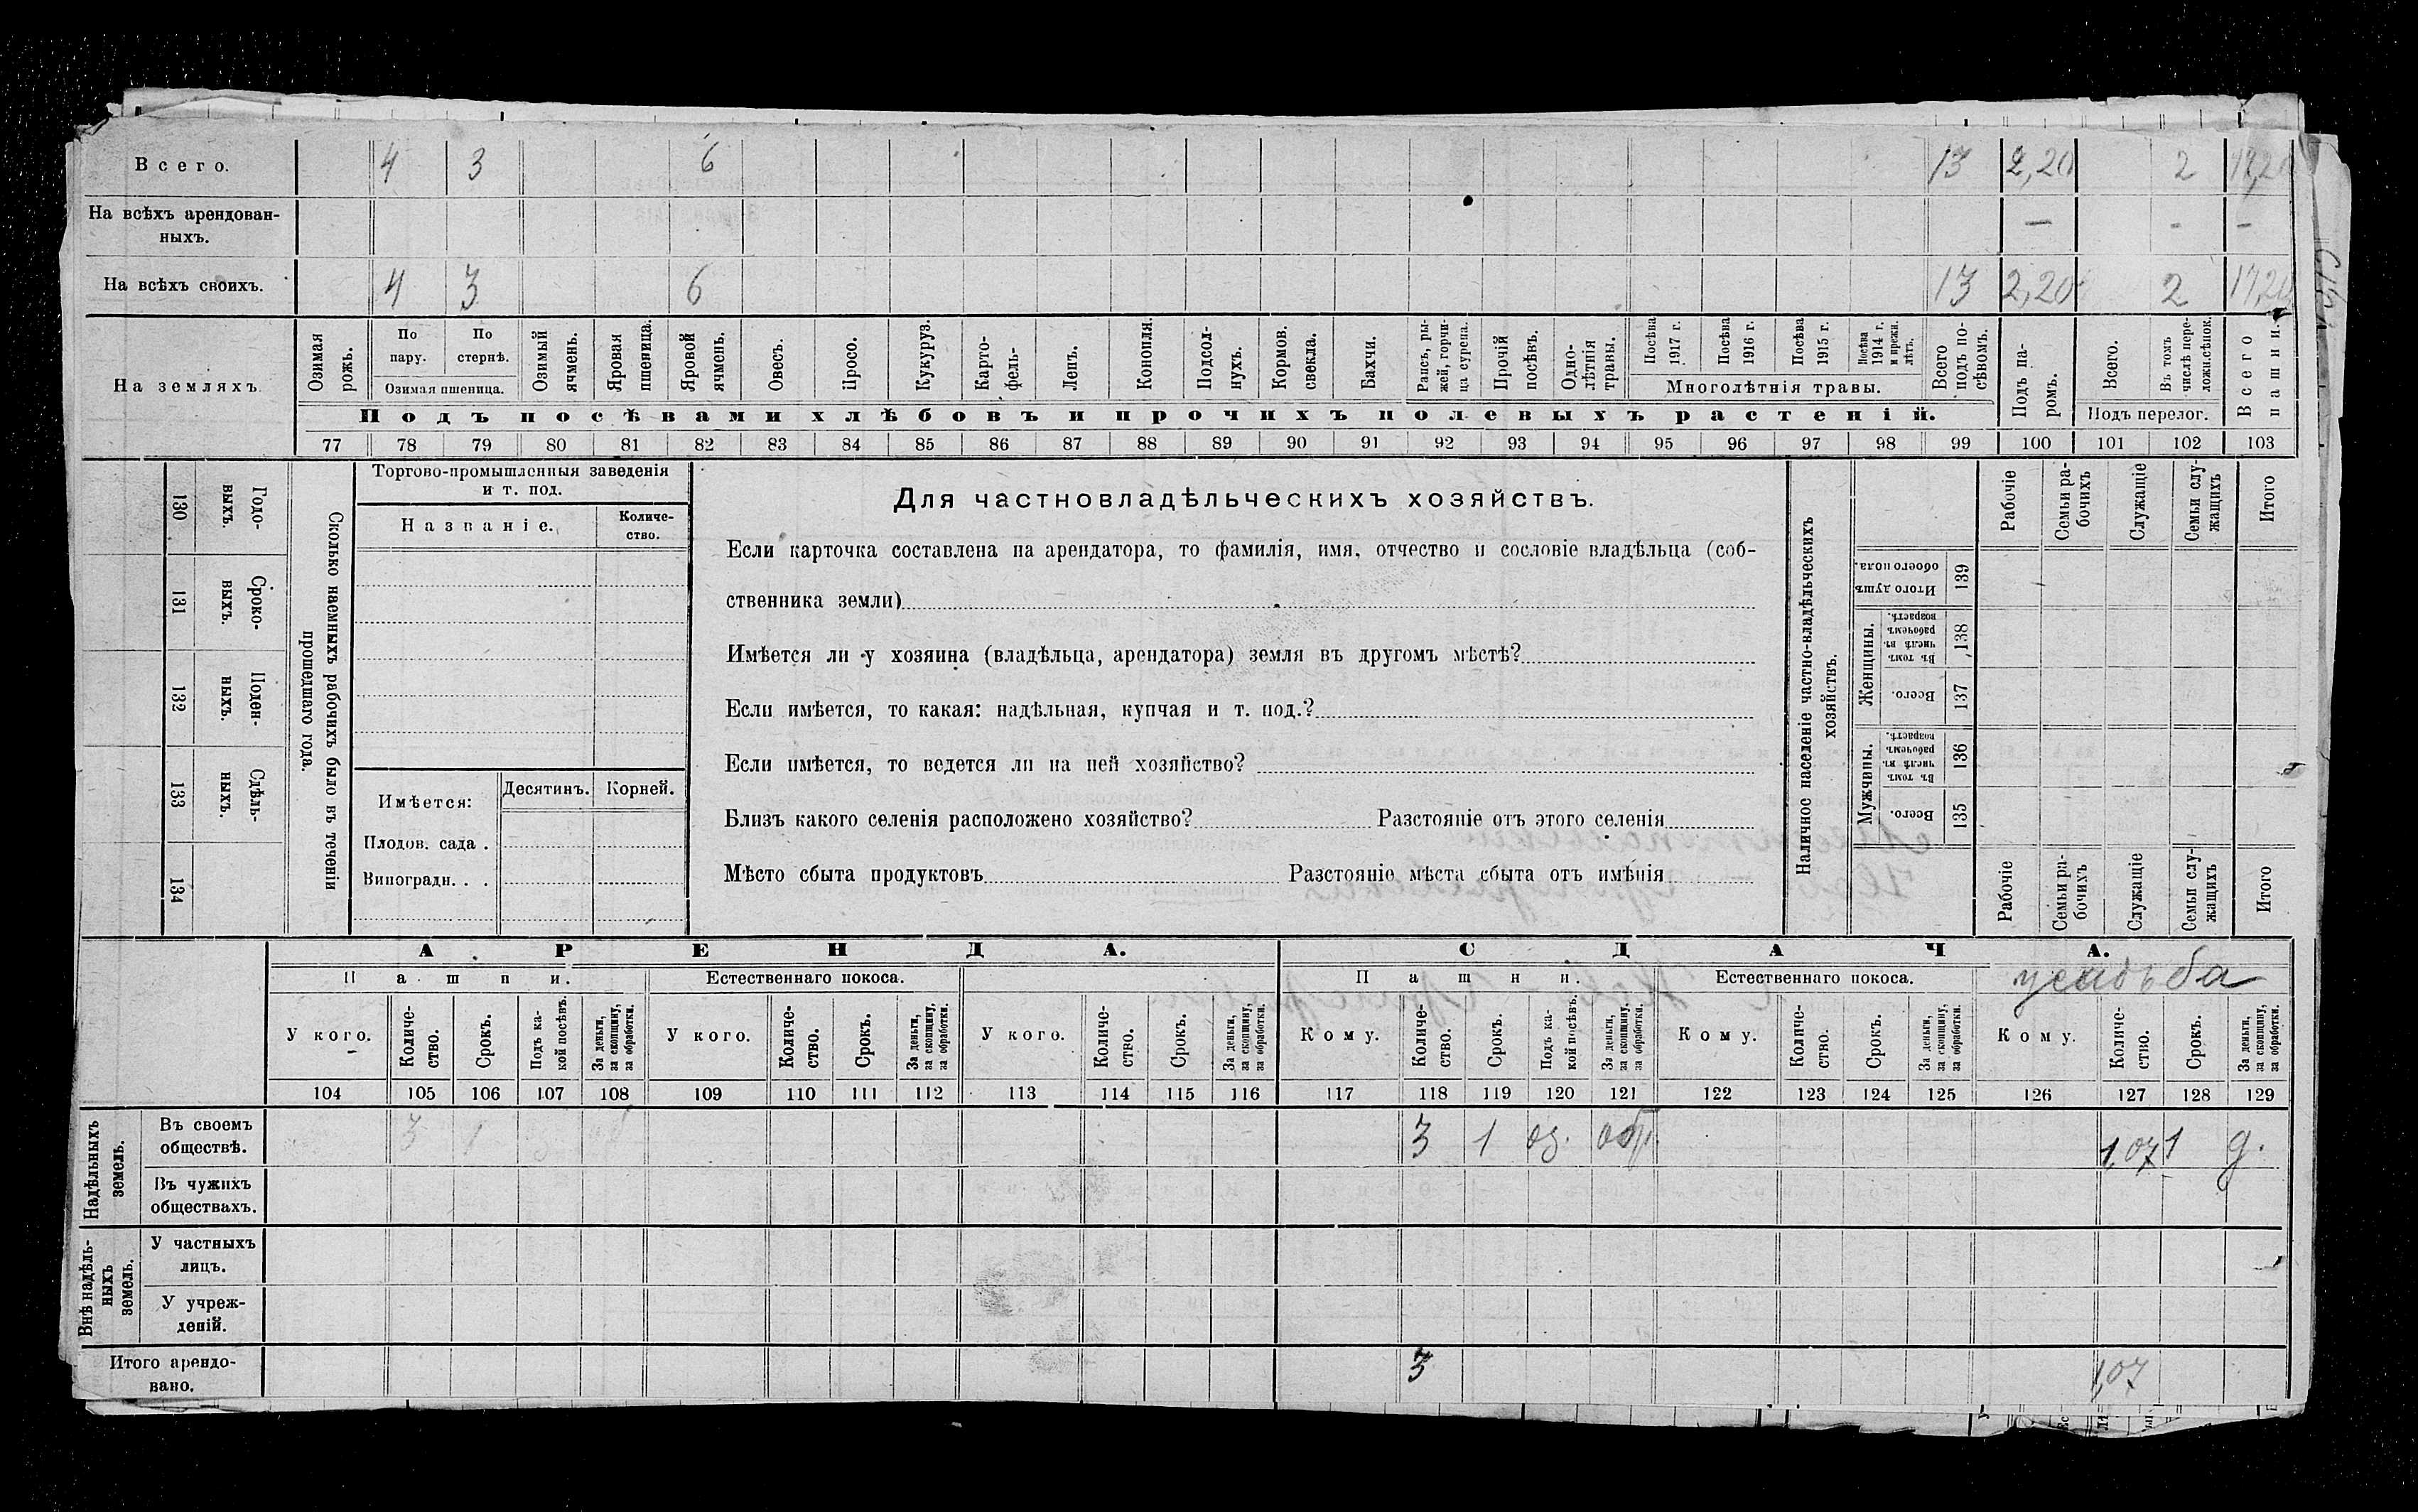 Всего. 4 3 6 13 2,20 2 17,20
На всѣхъ арендован-
ныхъ. — - -
На всѣхъ своихъ. 4 3 6 13 2,20 2 17,20
На земляхъ.
Озимая рожь.
По пару.
По стернѣ.
Озимая пшеница.
Озимый ячмень.
Яровая пшеница.
Яровой ячмень.
Овесъ.
Просо.
Кукуруз.
Карто-
фель-
Ленъ.
Конопля.
Подсол-
нухъ.
Кормов.
свекла.
Бахчи.
Рапсъ, ры-
жей, горчи-
ца сурепа.
Прочій
посѣвъ.
Одно-
лѣтнія
травы.
Посѣва
1917 г.
Посѣва
1916 г.
Посѣва
1915 г.
Посѣва
1914 г.
и прежн.
лѣтъ.
Многолѣтнія травы.
Всего
подъ по-
сѣвомъ.
Подъ па-
ромъ.
Всего.
Въ томъ
числѣ пере-
ложн.сѣнок.
Подъ перелог.
Всего
пашни.
Подъ посѣвами хлѣбовъ и прочихъ полевыхъ растеній.
77 78 79 80 81 82 83 84 85 86 87 88 89 90 91 92 93 94 95 96 97 98 99 100 101 102 103
130 Годо-
выхъ.
131 Сроко-
выхъ.
132 Поден-
ныхъ.
133 Сдѣль-
ныхъ.
134
Сколько наемныхъ рабочихъ было въ теченіи
прошедшаго года.
Торгово-промышленныя заведенія
и т. под.
Названіе.
Количе-
ство.
Имѣется:
Десятинъ. Корней.
Плодов. сада .
Виноградн. . .
Для частновладѣльческихъ хозяйствъ.
Если карточка составлена на арендатора, то фамилія, имя, отчество и сословіе владѣльца (соб-
ственника земли)
Имѣется ли у хозяина (владѣльца, арендатора) земля въ другомъ мѣстѣ?
Если имѣется, то какая: надѣльная, купчая и т. под.?
Если имѣется, то ведется ли на ней хозяйство?
Близъ какого селенія расположено хозяйство? Разстояніе отъ этого селенія
Мѣсто сбыта продуктовъ Разстояніе мѣста сбыта отъ имѣнія
Наличное населеніе частно-владѣльческихъ
хозяйствъ.
Рабочіе
Семьи ра-
бочихъ
Служащіе
Семьи слу-
жащихъ
Итого
Итого душъ
обоего пола.
139
Женщины.
Въ томъ
числѣ въ
рабочемъ
возрастѣ.
138
Всего.
137
Мужчины.
Въ томъ
числѣ въ
рабочемъ
возрастѣ.
136
Всего.
135
Рабочіе
Семьи ра-
бочихъ
Служащіе
Семьи слу-
жащихъ
Итого
АРЕНДА. СДАЧА.
Пашни. Естественнаго покоса. Пашни. Естественнаго покоса. усадьба
У кого.
Количе-
ство.
Срокъ.
Подъ ка-
кой посѣвъ.
За деньги,
за скопщину,
за обработки.
У кого.
Количе-
ство.
Срокъ.
За деньги,
за скопщину,
за обработки.
У кого.
Количе-
ство.
Срокъ.
За деньги,
за скопщину,
за обработки.
Кому.
Количе-
ство.
Срокъ.
Подъ ка-
кой посѣвъ.
За деньги,
за скопщину,
за обработки.
Кому.
Количе-
ство.
Срокъ.
За деньги,
за скопщину,
за обработки.
Кому.
Количе-
ство.
Срокъ.
За деньги,
за скопщину,
за обработки.
104 105 106 107 108 109 110 111 112 113 114 115 116 117 118 119 120 121 122 123 124 125 126 127 128 129
Надѣльныхъ
земель.
Въ своемъ
обществѣ. 3 1 3 1 оз. обр. 1,07 1 д.
Въ чужихъ
обществахъ.
Внѣ надѣль-
ныхъ
земель.
У частныхъ
лицъ.
У учреж-
деній.
Итого арендо-
вано. 3 1,07